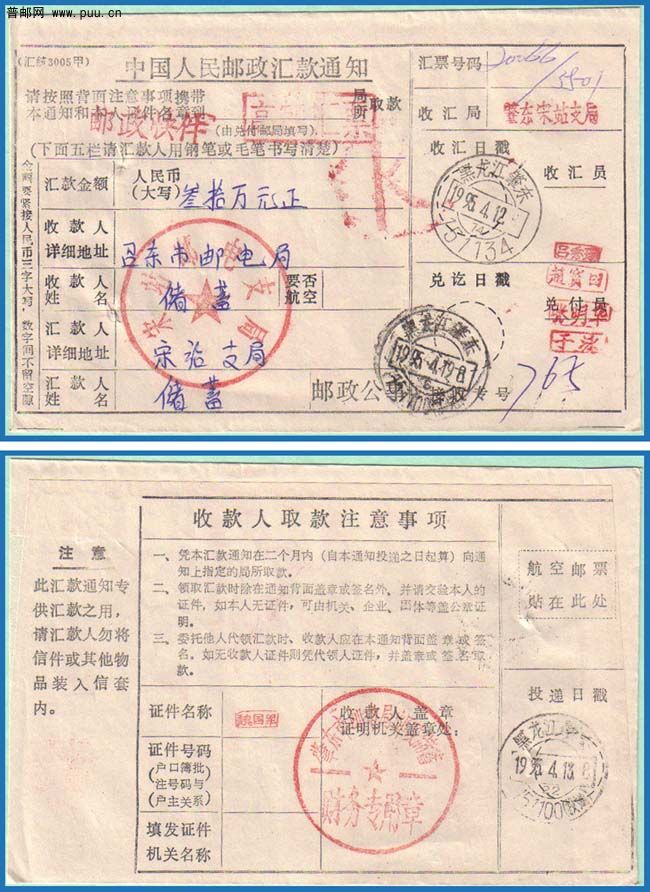 普邮网
www.puu.cn
(汇综3005甲)
中国人民邮政汇款通知
请按照背面注意事项携带
本通知和本人证件名章到
局
所
取款
(由兑付邮局填写)。
邮政快件
(下面五栏请汇款人用钢笔或毛笔书写清楚)
金额要紧接人民币三字大写，数字间不留空隙
汇款金额
人民币
(大写)
叁拾万元正
收款人
详细地址
吕东市邮电局
收款人
姓名
储蓄
要否
航空
汇款人
详细地址
宋站支局
汇款人
姓名
储蓄
宋站邮电支局
汇票号码
20066
/5501
收汇局
肇东宋站支局
收汇日戳
收汇员
黑龙江肇东
1995.4.12
151134
兑讫日戳
兑付员
黑龙江肇东
765
收款人取款注意事项
注意
此汇款通知专
供汇款之用，
请汇款人勿将
信件或其他物
品装入信套
内。
一、凭本汇款通知在二个月内（自本通知投递之日起算）向通
知上指定的局所取款。
二、领取汇款时除在通知背面盖章或签名外、并请交验本人的
证件，如本人无证件，可由机关、企业、团体等盖公章证
明。
三、委托他人代领汇款时、收款人应在本通知背面盖章或签
名。如无收款人证件则凭代领人证件，并盖章或签名取
款。
航空邮票
贴在此处
投递日戳
证件名称
收款人盖章
证明机关盖章处：
证件号码
(户口簿批
注号码与
户主关系)
填发证件
机关名称
财务专用章
黑龙江肇东
1995.4.13.8